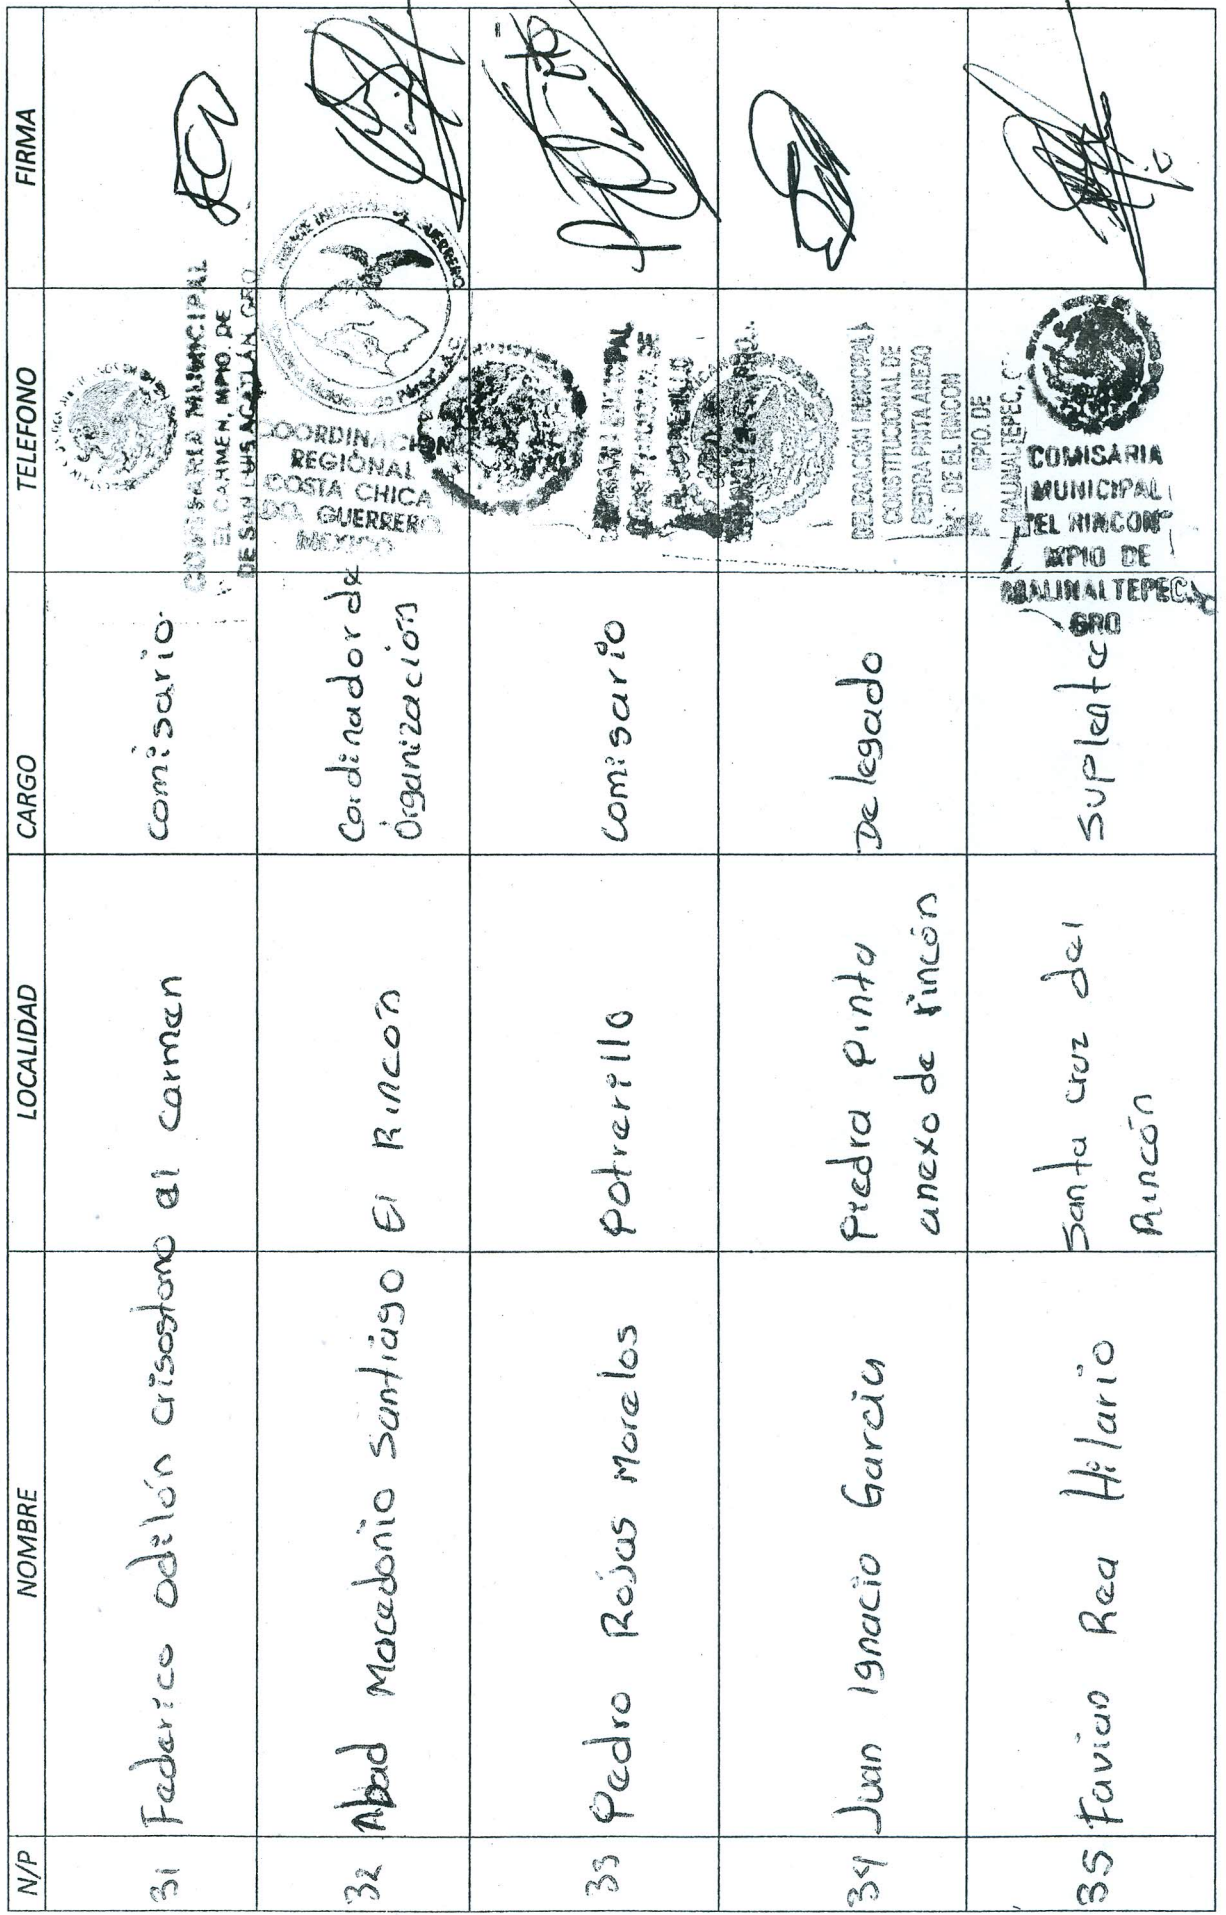 N/P NOMBRE LOCALIDAD CARGO TELEFONO FIRMA
31 Federico Odilón Crisostomo el Carmen comisario
COMISARIA MUNICIPAL
EL CARMEN, MPIO. DE
DE SAN LUIS ACATLÁN, GRO
32 Abad Macedonio Santiago El Rincón Cordinador de
Organización
COORDINACION
REGIONAL
COSTA CHICA
DO. GUERRERO
MEXICO
33 Pedro Rojas Morelos Potrerillo comisario
34 Juan Ignacio Garcia Piedra Pinta
anexo de rincón
Delegado
DELEGACION MUNICIPAL
CONSTITUCIONAL DE
PIEDRA PINTA ANEXO
DE EL RINCON
MPIO. DE
MALINALTEPEC, G
35 Favian Rea Hilario Santa Cruz del
Rincón
Suplente
COMISARIA
MUNICIPAL
EL RINCON
MPIO DE
MALINALTEPEC
GRO